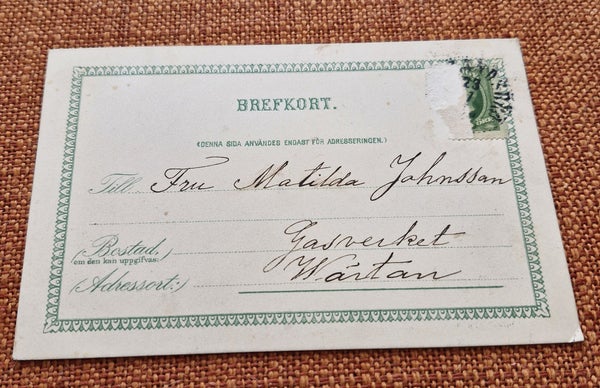 BREFKORT.
(DENNA SIDA ANVÄNDES ENDAST FÖR ADRESSERINGEN.)
Till Fru Matilda Johnssan
(Bostad, Gasverket
om den kan uppgifvas:)
(Adressort:) Wärtan